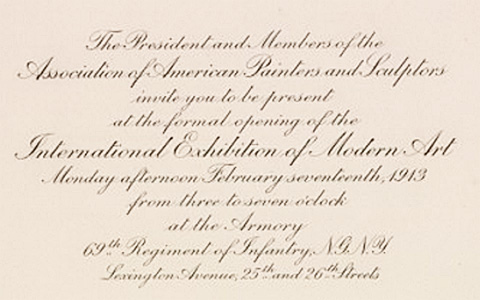 The President and Members of the
Association of American Painters and Sculptors
invite you to be present
at the formal opening of the
International Exhibition of Modern Art
Monday afternoon February seventeenth, 1913
from three to seven o'clock
at the Armory
69th Regiment of Infantry, N.G.N.Y.
Lexington Avenue, 25th and 26th Streets